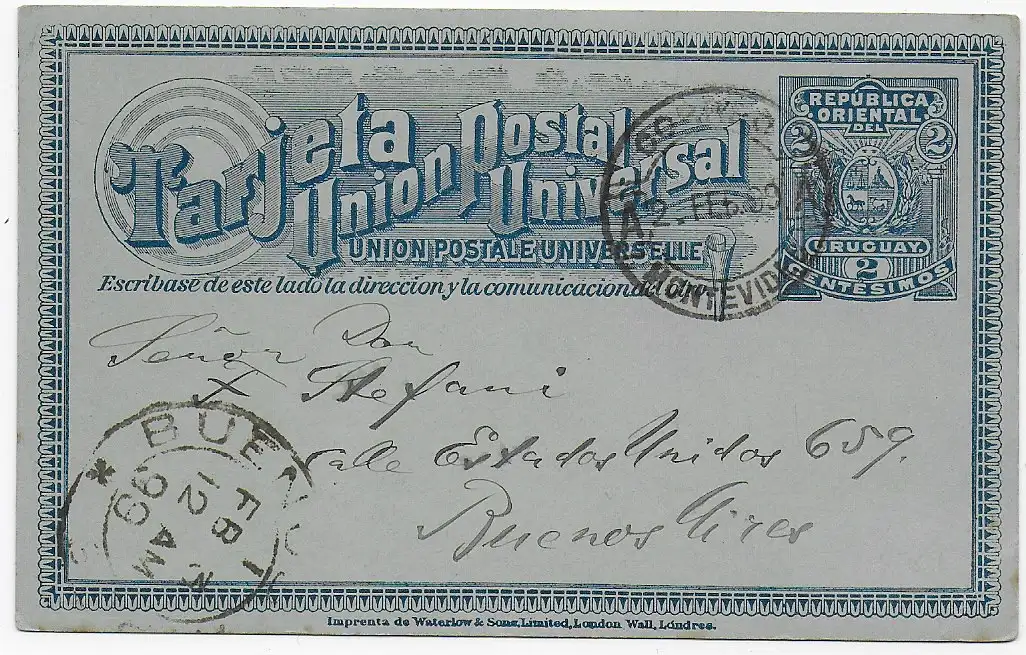 Tarjeta Postal
Union Universal
UNION POSTALE UNIVERSELLE
Escríbase de este lado la direccion y la comunicacion del otro
REPÚBLICA
ORIENTAL
DEL
2 2
URUGUAY
2
CENTÉSIMOS
A 2 FEB 99 A
MONTEVIDEO
Señor Don
X Stefani
Calle Estados Unidos 659.
Buenos Aires
BUENO
FB
12 AM
99
Imprenta de Waterlow & Sons, Limited, London Wall, Lóndres.